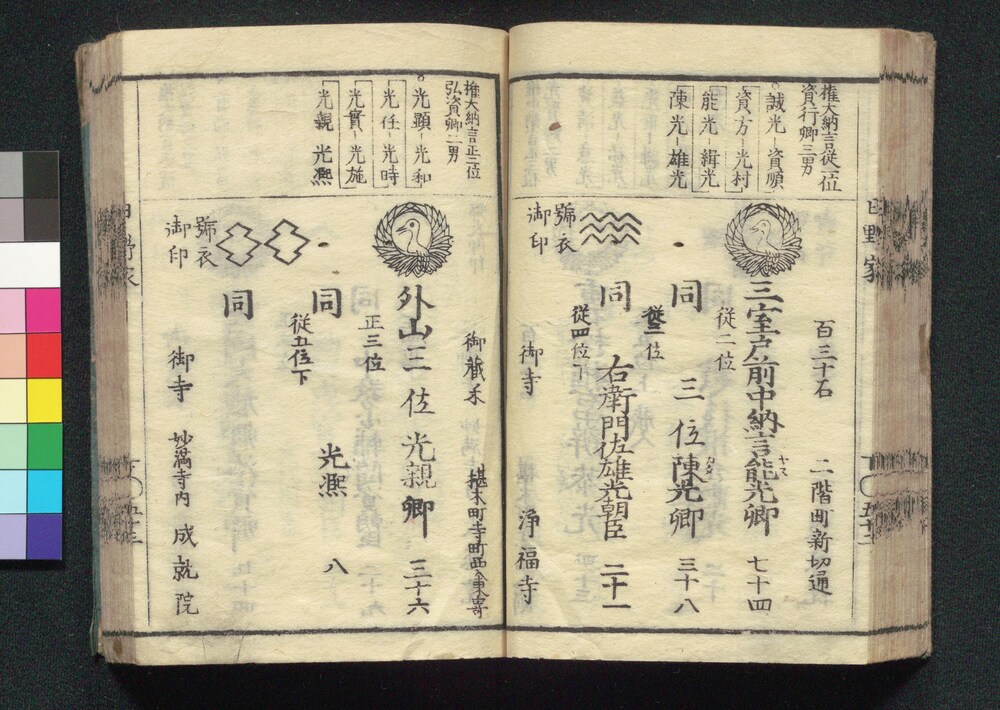 日野家
五十二
権大納言従一位
資行卿三男
誠光 資順
資方 光村
能光 緝光
陳光 雄光
百三十石
二階町新切通
三室戸前中納言能光卿 七十四
ヤス
従二位
同 三位陳光卿 三十八
カタ
従三位
同 右衛門佐雄光朝臣 二十一
従四位下
號衣
御印
御寺 浄福寺
権大納言正二位
弘資卿二男
光顕 光和
光任 光時
光實 光施
光親 光凞
御蔵米
椹木町寺町西
外山三位光親卿 三十六
正三位
同 光凞 八
従五位下
同
號衣
御印
御寺 妙満寺内 成就院
五十三